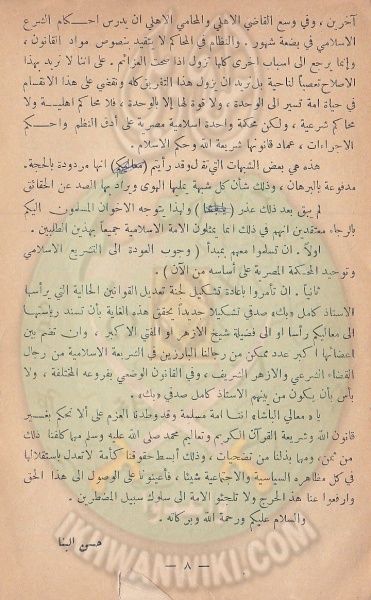 آخرين ، وفي وسع القاضي الاهلي والمحامي الاهلي ان يدرس احكام الشرع
الاسلامي في بضعة شهور . والنظام في المحاكم لا يتقيد بنصوص مواد القانون ،
وإنما يرجع الى اسباب اخرى كلها تزول اذا صحت العزائم . على اننا لا نريد بهذا
الاصلاح تعصباً لناحية بل نريد ان يزول هذا التفريق كله ونقضي على هذا الانقسام
في حياة امة تسير الى الوحدة ، ولا قوة لها إلا بالوحدة ، فلا محاكم اهلية ولا
محاكم شرعية ، ولكن محكمة واحدة اسلامية مصرية على أدق النظم واحكم
الاجراءات ، عماد قانونها شريعة الله وحكم الاسلام .
هذه هي بعض الشبهات التي تقال وقد رأيتم انها مردودة بالحجة .
مدفوعة بالبرهان ، وذلك شأن كل شبهة يمليها الهوى ويراد بها الصد عن الحقائق
لم يبق بعد ذلك عذر ولهذا يتوجه الاخوان المسلمون اليكم
بالرجاء معتقدين انهم في ذلك انما يمثلون الامة الاسلامية جميعاً بهذين الطلبين .
اولاً . ان تسلموا معهم بمبدأ ( وجوب العودة الى التشريع الاسلامي
وتوحيد المحكمة المصرية على أساسه من الآن ) .
ثانياً . ان تأمروا باعادة تشكيل لجنة تعديل القوانين الحالية التي يرأسها
الاستاذ كامل «بك» صدقي تشكيلا جديداً يحقق هذه الغاية بأن تسند رياستها
الى معاليكم رأسا او الى فضيلة شيخ الازهر او المفتي الاكبر ، وان تضم بين
اعضائها اكبر عدد ممكن من رجالنا البارزين في الشريعة الاسلامية من رجال
القضاء الشرعي والازهر الشريف ، وفي القانون الوضعي بفروعه المختلفة ، ولا
بأس بأن يكون من بينهم الاستاذ كامل صدقي «بك» .
يا « معالي الباشا» اننا امة مسلمة وقد وطدنا العزم على ألا نحكم بغير
قانون الله وشريعة القرآن الكريم وتعاليم محمد صلى الله عليه وسلم مهما كلفنا ذلك
من ثمن، ومهما بذلنا من تضحيات ، وذلك أبسط حقوقنا كأمة لا تعدل باستقلالها
في كل مظاهره السياسية والاجتماعية شيئا ، فأعينونا على الوصول الى هذا الحق
وارفعوا عنا هذا الحرج ولا تلجئوا الامة الى سلوك سبيل المضطرين .
والسلام عليكم ورحمة الله وبركاته .
حسن البنا
— ٨ —
IKHWANWIKI.COM